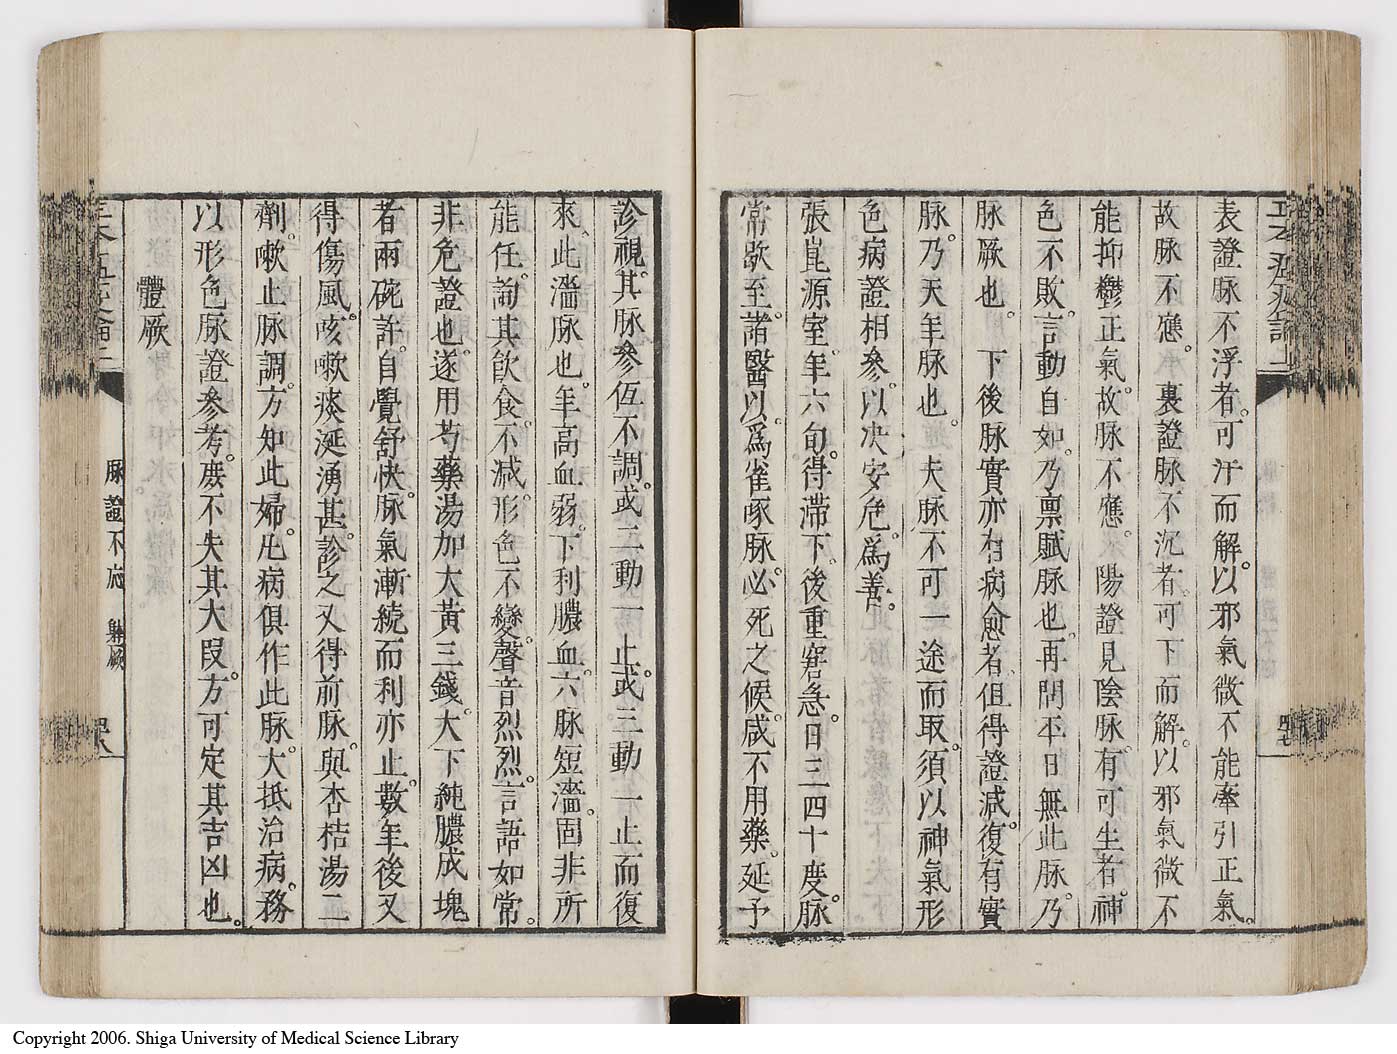 表證脉不浮者。可汗而解。以邪氣微不能牽引正氣。
故脉不應。裏證脉不沉者。可下而解。以邪氣微不
能抑鬱正氣。故脉不應。陽證見陰脉。有可生者。神
色不敗。言動自如。乃禀賦脉也。再問平日無此脉。乃
脉厥也。下後脉實亦有病愈者。但得證減。復有實
脉。乃天年脉也。夫脉不可一途而取。須以神氣形
色病證相參。以决安危。爲善。
張崑源室。年六旬。得滯下。後重窘急。日三四十度。脉
常歇至。諸醫以爲雀啄脉。必死之候。咸不用藥。延予
診視。其脉參伍不調。或二動一止。或三動一止而復
來。此濇脉也。年高血弱。下利膿血。六脉短濇。固非所
能任。詢其飲食。不減。形色不變。聲音烈烈。言語如常。
非危證也。遂用芍藥湯加大黄三錢。大下純膿成塊
者兩碗許。自覺舒快。脉氣漸續。而利亦止。數年後又
得傷風。咳嗽痰涎湧甚。診之又得前脉。與杏桔湯二
劑。嗽止脉調。方知此婦。凡病俱作此脉。大抵治病。務
以形色脉證參考。庻不失其大段。方可定其吉凶也。
體厥
脉證不應 躰厥